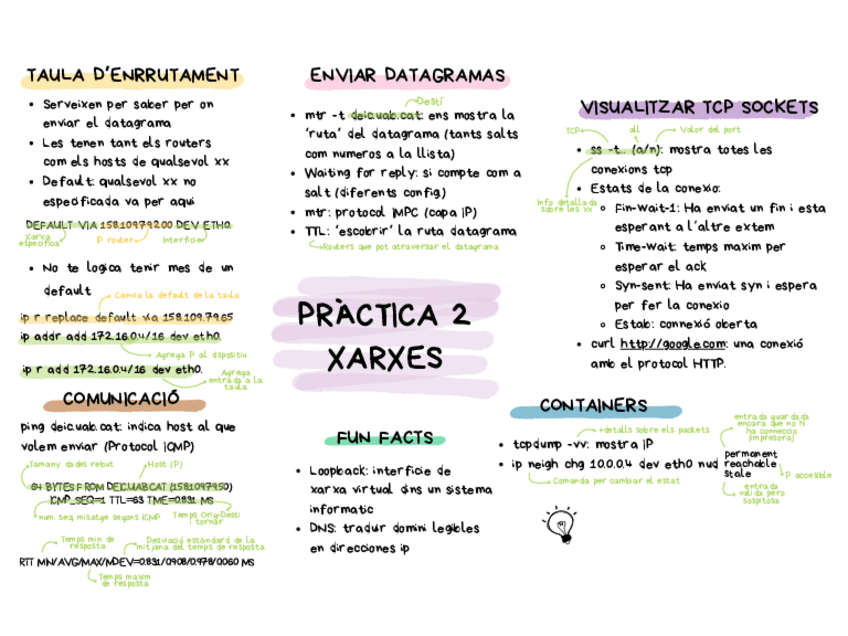 TAULA D'ENRRUTAMENT
• Serveixen per saber per on
enviar el datagrama
• Les tenen tant els routers
com els hosts de qualsevol xx
• Default: qualsevol xx no
especificada va per aqui
DEFAULT VIA 158.109.79.200 DEV ETH0.
Xarxa
especifica
IP router
Interficie
• No te logica tenir mes de un
default
Canvia la default de la taula
ip r replace default via 158.109.79.65
ip addr add 172.16.0.4/16 dev eth0.
Agrega IP al dispositiu
ip r add 172.16.0.4/16 dev eth0.
Agrega
entrada a la
taula
COMUNICACIÓ
ping deic.uab.cat: indica host al que
volem enviar (Protocol ICMP)
Tamany dades rebut
Host (IP)
64 BYTES FROM DEIC.UAB.CAT (158.109.79.50)
ICMP_SEQ=1 TTL=63 TIME=0.831 MS
num. seq misatge segons ICMP
Temps Orig-Desti
tornar
Temps min de
resposta
Desviació estandard de la
mitjana del temps de resposta
RTT MIN/AVG/MAX/MDEV=0.831/0.908/0.978/0.060 MS
Temps maxim
de resposta
ENVIAR DATAGRAMAS
Destí
• mtr -t deic.uab.cat: ens mostra la
'ruta' del datagrama (tants salts
com numeros a la llista)
• Waiting for reply: si compte com a
salt (diferents config.)
• mtr: protocol IMPC (capa IP)
• TTL: 'escobrir' la ruta datagrama
Routers que pot atraversar el datagrama
PRÀCTICA 2
XARXES
FUN FACTS
• Loopback: interficie de
xarxa virtual dins un sistema
informatic
• DNS: traduir domini legibles
en direcciones ip
VISUALITZAR TCP SOCKETS
TCP
all
Valor del port
• ss -t.. (a/n): mostra totes les
conexions tcp
• Estats de la conexio:
Info detallada
sobre les xx
◦ Fin-Wait-1: Ha enviat un fin i esta
esperant a l'altre extem
◦ Time-Wait: temps maxim per
esperar el ack
◦ Syn-sent: Ha enviat syn i espera
per fer la conexio
◦ Estab: connexió oberta
• curl http://google.com: una conexió
amb el protocol HTTP.
CONTAINERS
+detalls sobre els packets
• tcpdump -vv: mostra IP
• ip neigh chg 10.0.0.4 dev eth0 nud
Comanda per cambiar el estat
entrada guardada
encara que no hi
ha connecció
(impresora)
permanent
reachable
stale
IP accesible
entrada
valida pero
sospitosa